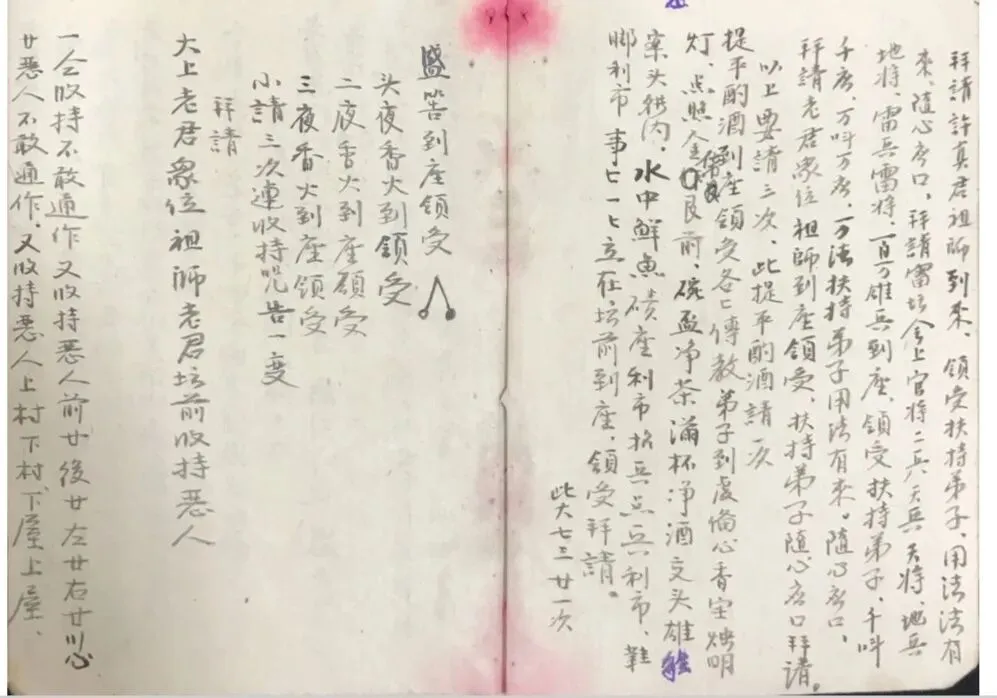 拜請許真君祖師到來、領受扶持弟子、用法法有
來、隨心应口、拜請雷坛会上官将二兵、天兵天将、地兵
地将、雷兵雷将一百万雄兵到座、領受扶持弟子、千叫
千应、万叫万应、一万法扶持弟子用法有來。隨心应口、
拜請老君眾位祖師到座領受、扶持弟子隨心应口拜請。
以上要請三次、此提平酌酒請一次
提平酌酒到座領受各七傳教弟子到虔偹心香宝烛明
灯、点照金 艮前、碗盈净茶满杯净酒文头雄
案头 内、水中鮮魚碛座利市招兵点兵利市、鞋
脚利市事七一七立在坛前到座、領受拜請。
此大七三廿一次
盛筶到座領受
头夜香火到領受
二夜香火到座領受
三夜香火到座領受
小請三次連收持咒告一变
拜請
大上老君眾位祖師老君坛前收持恶人
一仝收持不敢通作又收持恶人前廿後廿左廿右廿 心
廿恶人不敢通作、又收持恶人上村下村、下屋上屋、